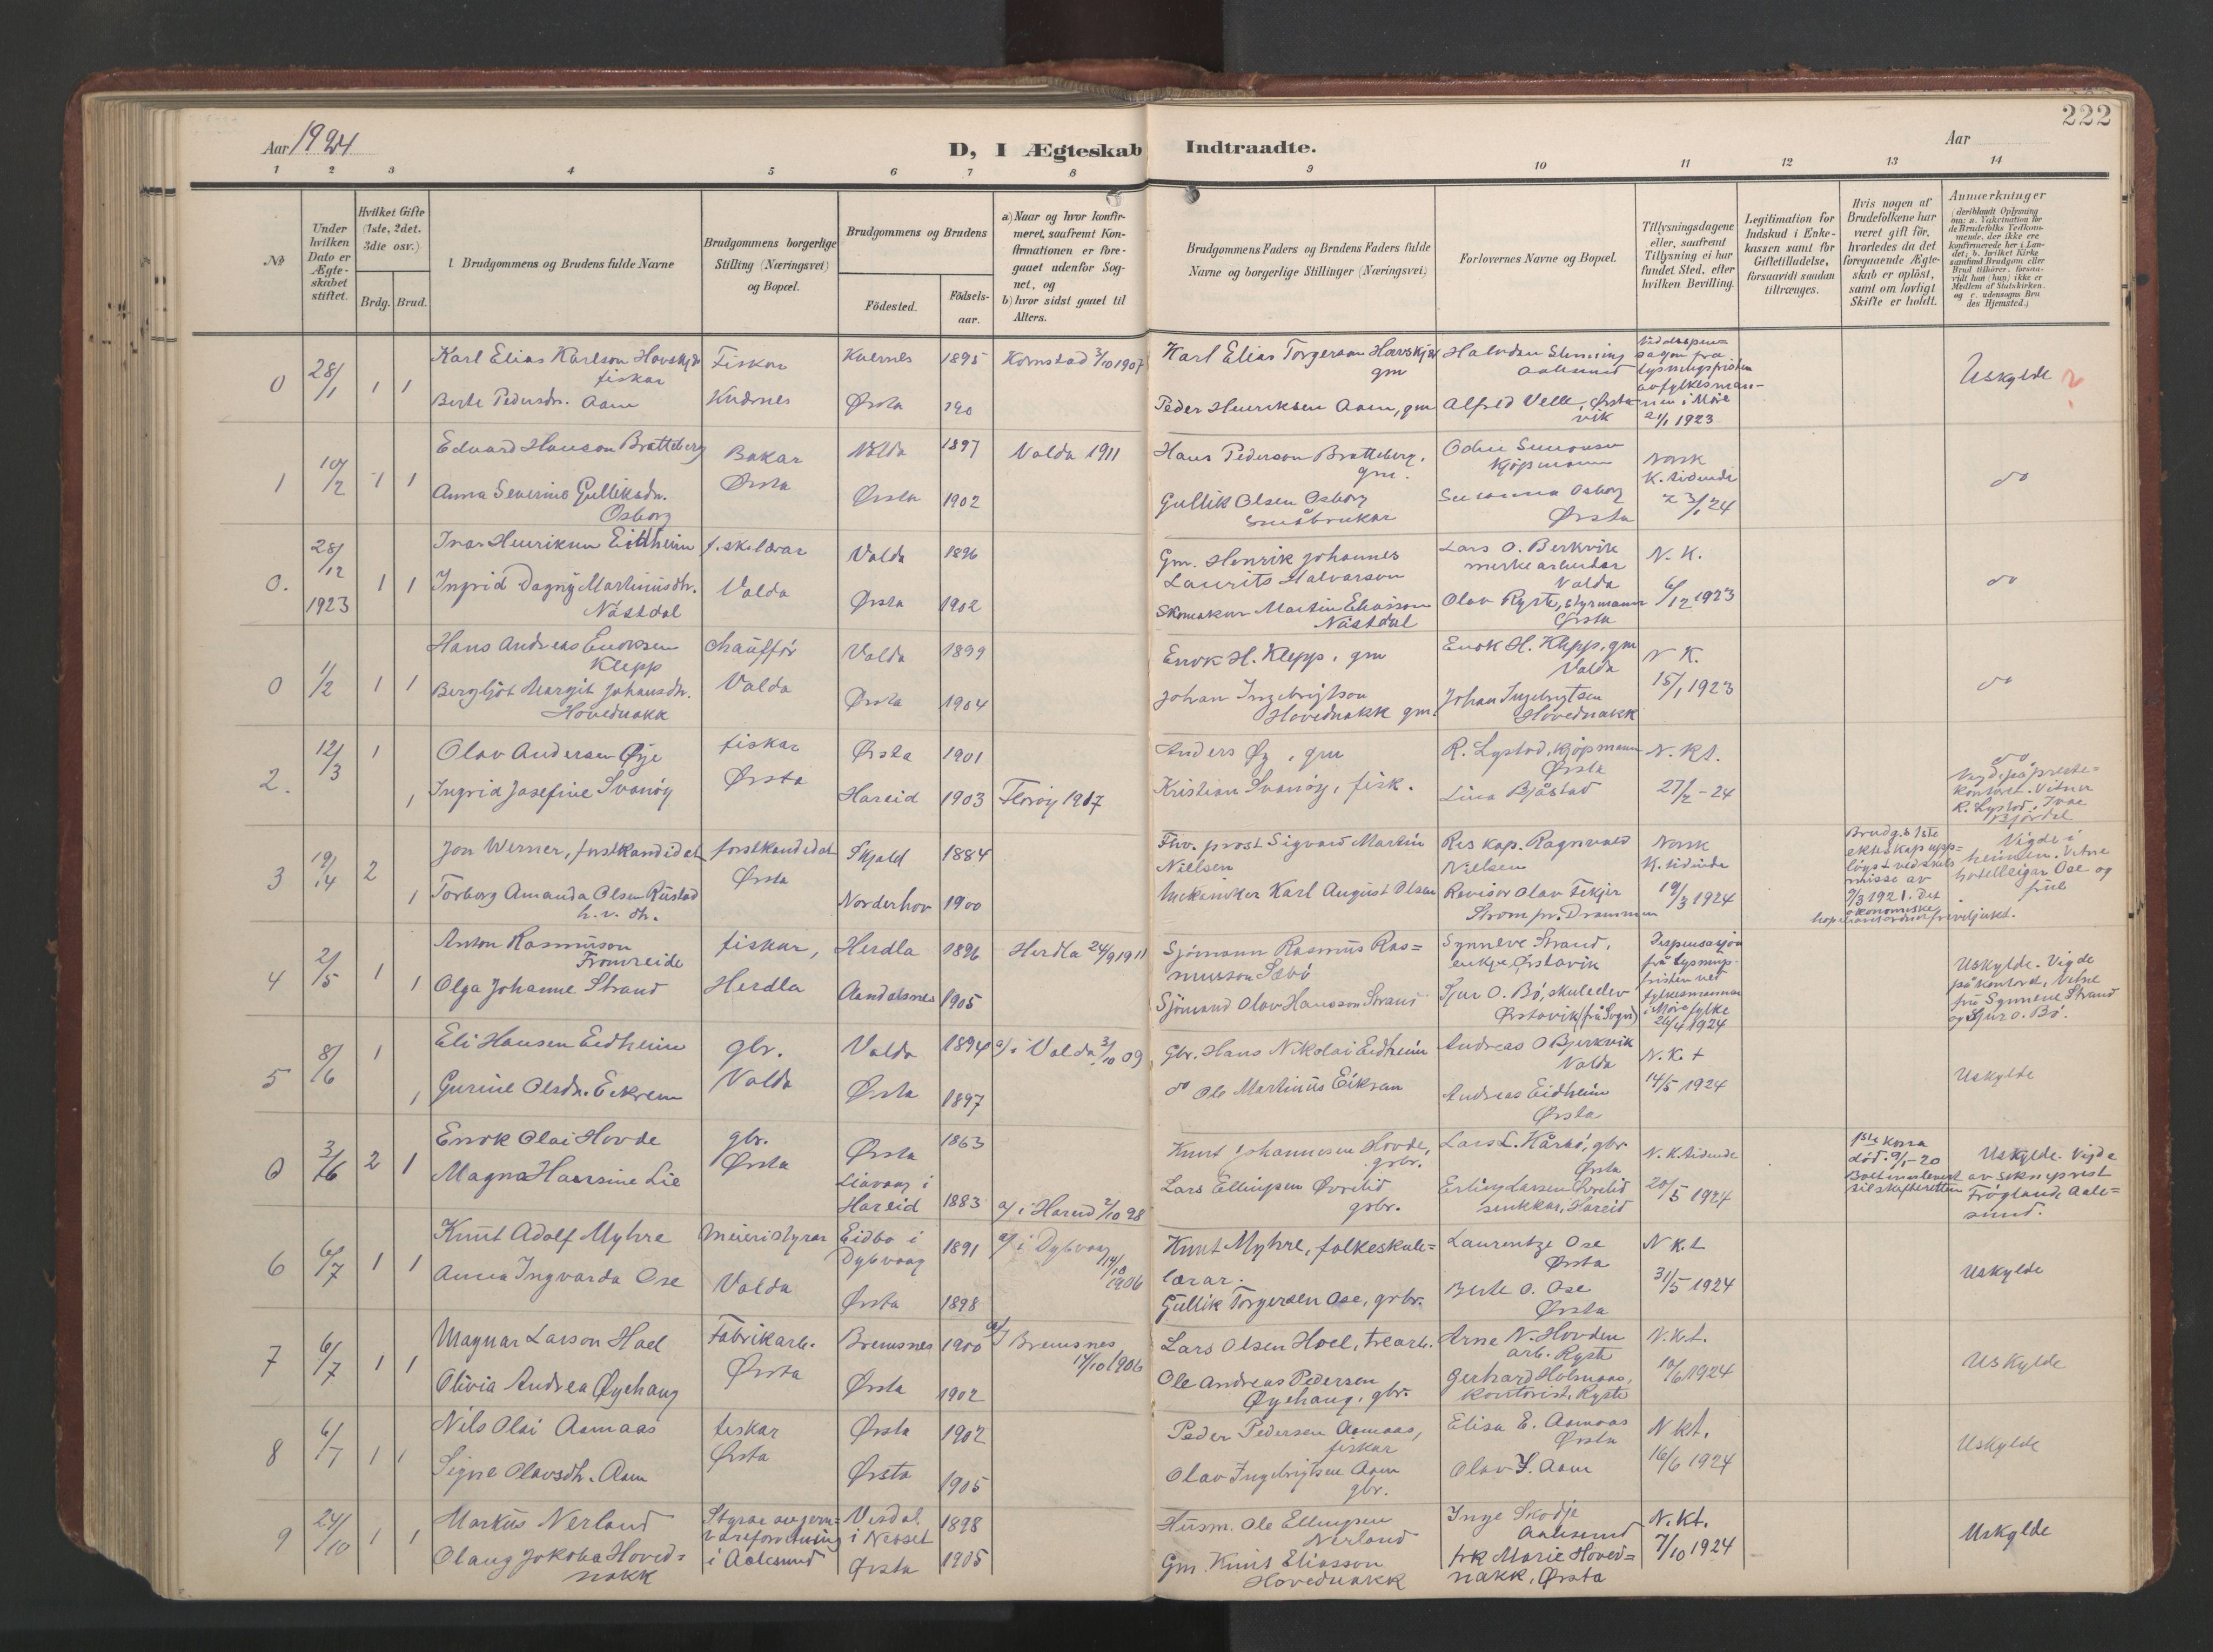 222
Aar 1924
D, I Ægteskab Indtraadte.
Aar
1 2 3 4 5 6 7 8 9 10 11 12 13 14
No
Under hvilken Dato er Ægte-skabet stiftet.
Hvilket Gifte (1ste, 2det. 3die osv.)
Brdg. Brud.
Brudgommens og Brudens fulde Navne
Brudgommens borgerlige Stilling (Næringsvei) og Bopæl.
Brudgommens og Brudens
Födested.
Födsels-aar.
a) Naar og hvor konfir-meret, saafremt Kon-firmationen er fore-gaaet udenfor Sog-net, og
b) hvor sidst gaaet til Alters.
Brudgommens Faders og Brudens Faders fulde Navne og borgerlige Stillinger (Næringsvei)
Forlovernes Navne og Bopæl.
Tillysningsdagene eller, saafremt Tillysning ei har fundet Sted, efter hvilken Bevilling.
Legitimation for Indskud i Enke-kassen samt for Giftetilladelse, forsaavidt saadan tiltrænges.
Hvis nogen af Brudefolkene har været gift för, hvorledes da det foregaaende Ægte-skab er oplöst, samt om lovligt Skifte er holdt.
Anmærkninger
0 28/1 1 1
Karl Elias Karlson Havskjer
fiskar
Berte Pedersdr. Aam
Fiskar
Kvernes
Kvernes 1895
Ørsta 190
Kornstad 3/10 1907
Karl Elias Torgerson Havskjer
gm
Peder Henriksen Aam, gm
Halvdan Slinning
Aalesund
Alfred Velle, Ørsta-
vik
av fylkesman-
nen i Möre
21/1 1923
Uskylde ?
1 10/2 1 1
Edvard Hanson Bratteberg
Anna Severine Gulliksdr.
Osborg
Bakar
Ørsta
Volda 1897
Ørsta 1902
Volda 1911
Hans Pederson Bratteberg,
gm.
Gullik Olsen Osborg
småbrukar
Odin Simonsen
Kjøpmann
Susanna Osborg
Ørsta
Norsk
K. tidende
23/1 24
do
0. 28/12 1923 1 1
Ivar Henriksen Eidheim
Ingrid Dagny Martinusdtr.
Nåstdal
Volda
Volda 1896
Ørsta 1902
Gm. Henrik Johannes
Laurits Halvarson
Skomakar Martin Eliasson
Nåstdal
Lars O. Berkvik
Volda
Olav Ryste, styrmann
Ørsta
N. K.
6/12 1923
do
0 1/2 1 1
Hans Andreas Enoksen
Klepp
Bergljot Margit Johansdr.
Hovednakk
Chauffør
Volda
Volda 1899
Ørsta 1904
Enok H. Klepp, gm
Johan Ingebrigtson
Hovednakk gm.
Enok H. Klepp, gm
Volda
Johan Ingebrigtsen
Hovednakk
N K.
15/1 1923
do
2. 12/3 1 1
Olav Andersen Øye
Ingrid Josefine Svanøy
fiskar
Ørsta
Ørsta 1901
Hareid 1903
Florøy 1917
Anders Øy, gm
Kristian Svanøy, fisk.
R. Lystad, kjøpmann
Ørsta
Lina Bjåstad
N. Kt.
27/2 - 24
do
Vigde på preste-
kontoret. Vitner
R. Lystad, Ivar
3 19/4 2 1
Jon Werner, forstkandidat
Torborg Amanda Olsen Rustad
forstkandidat
Ørsta
Skjold 1884
Norderhov 1900
Fhv. prost Sigvard Martin
Nielsen
Mekaniker Karl August Olsen
Res kap. Ragnvald
Nielsen
Revisor Olav Fekjer
Strøm pr. Drammen
Norsk
K. tidende
19/3 1924
Brudg.s 1ste
ekteskap upp-
løyst ved skils-
misse av
9/3 1921. Det
økonomiske
Vigde i
heimen. Vitne
hotelleigar Ose og
frue
4 2/5 1 1
Anton Rasmusson
Fromreide
Olga Johanne Strand
fiskar,
Herdla
Herdla 1896
Aandalsnes 1905
Herdla 24/9 1911
Sjømann Rasmus Ras=
musson Sæbö
Sjømand Olav Hansson Strand
Synneve Strand,
enkje, Ørstavik
Sjur O. Bö, skuleelev
Ørstavik (frå Sogn)
Dispensasjon
frå lysnings-
fristen ved
fylkesmannen
i Möre fylke
26/4 1924
Uskylde. Vigde
på kontoret, Vitne
fru Synneve Strand
og Sjur O. Bö.
5 8/6 1 1
Eli Hansen Eidheim
Gurine Olsdr. Eikrem
gbr.
Volda
Volda 1894
Ørsta 1897
a/ i Volda 3/10 09
Gbr. Hans Nikolai Eidheim
do Ole Martinus Eikrem
Andreas O Bjerkvik
Volda
Andreas Eidheim
Ørsta
N. K. t
14/5 1924
Uskylde
0 3/6 2 1
Enok Olai Hovde
Magna Haarsine Lie
gbr.
Ørsta
Ørsta 1863
Liavaag i
Hareid 1883
a/ i Hareid 2/10 98
Knut Johannesen Hovde,
grbr.
Lars Ellingsen Øvrelid
grbr.
Lars L. Hårbö, gbr
Ørsta
Erling Larsen Øvrelid
snikkar, Hareid
N. K. tidende
20/5 1924
1ste kona
död. 9/1 - 20
Uskylde. Vigde
av sokneprest
Frøyland Aale=
sund.
6 6/7 1 1
Knut Adolf Myhre
Anna Ingvarda Ose
Meieristyrar
Volda
Eidbo i
Dybvaag 1891
Ørsta 1898
a/ i Dybvaag
14/10
1906
Knut Myhre, folkeskule=
lærar.
Gullik Torgersen Ose, grbr.
Laurentze Ose
Ørsta
Berte O. Ose
Ørsta
N K. t
31/5 1924
Uskylde
7 6/7 1 1
Magnar Larson Hoel
Olivia Andrea Øyehaug
Fabrikarb.
Ørsta
Bremsnes 1900
Ørsta 1902
a/ Bremsnes
14/10 1906
Lars Olsen Hoel, trearb.
Ole Andreas Pedersen
Øyehaug, gbr.
Arne N. Hovden
arb. Ryste
Gerhard Holmaas,
kontorist, Ryste
N. K. t.
10/6 1924
Uskylde
8 6/7 1 1
Nils Olai Aamaas
Signe Olavsdh. Aam
fiskar
Ørsta
Ørsta 1902
Ørsta 1905
Peder Pedersen Aamaas,
fiskar
Olav Ingebrigtsen Aam
gbr.
Elisa E. Aamaas
Ørsta
Olav I. Aam
N kt.
16/6 1924
Uskylde
9 24/10 1 1
Markus Nerland
Olaug Jakoba Hoved=
nakk
Styrar av jern=
vareforretning
i Aalesund
Visdal
i Nesset 1898
Ørsta 1905
Husm. Ole Ellingsen
Nerland
Gm. Knut Eliasson
Hovednakk
Inge Skodje
Aalesund
frk Marie Hoved=
nakk, Ørsta
N. Kt.
7/10 1924
Uskylde